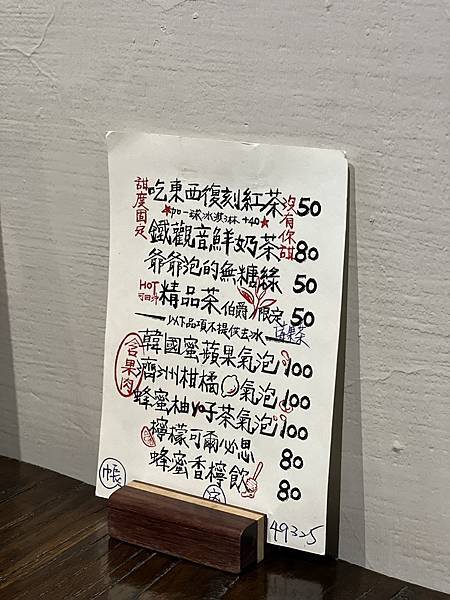 甜度固定
吃東西復刻紅茶 50
沒有你甜
★加一球冰淇淋 +40★
鐵觀音鮮奶茶 80
爺爺泡的無糖綠 50
HOT 可
精品茶 伯爵 限定 50
果茶
以下品項不提供去冰
含果肉
韓國蜜蘋果氣泡 100
濟州柑橘氣泡 100
蜂蜜柚yo子茶氣泡 100
檸檬可爾必思 80
蜂蜜香檸飲 80
帳
49325